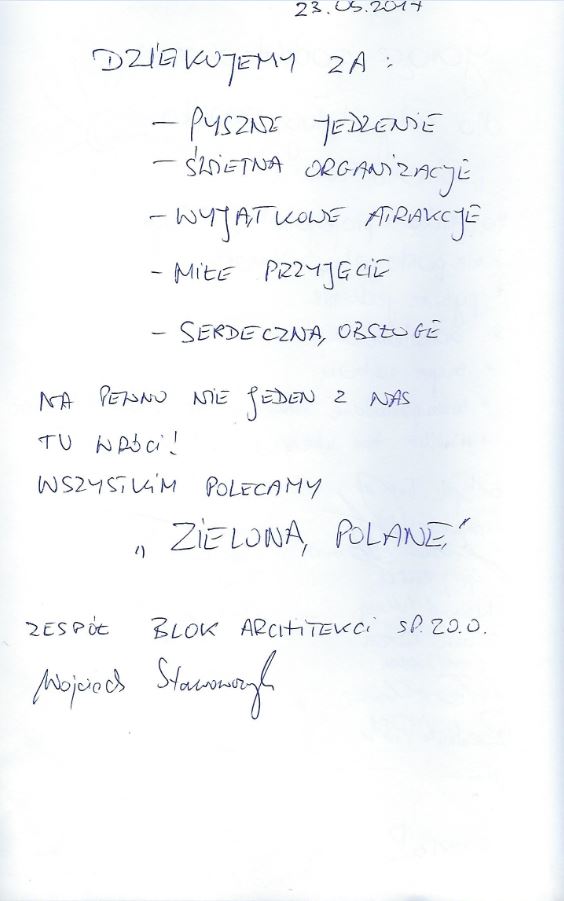 23.05.2017
DZIĘKUJEMY ZA :
- PYSZNE JEDZENIE
- ŚWIETNĄ ORGANIZACJĘ
- WYJĄTKOWE ATRAKCJE
- MIŁE PRZYJĘCIE
- SERDECZNĄ OBSŁUGĘ
NA PEWNO NIE JEDEN Z NAS
TU WRÓCI!
WSZYSTKIM POLECAMY
„ZIELONĄ POLANĘ”
ZESPÓŁ BLOK ARCHITEKCI SP. ZO.O.
Wojciech